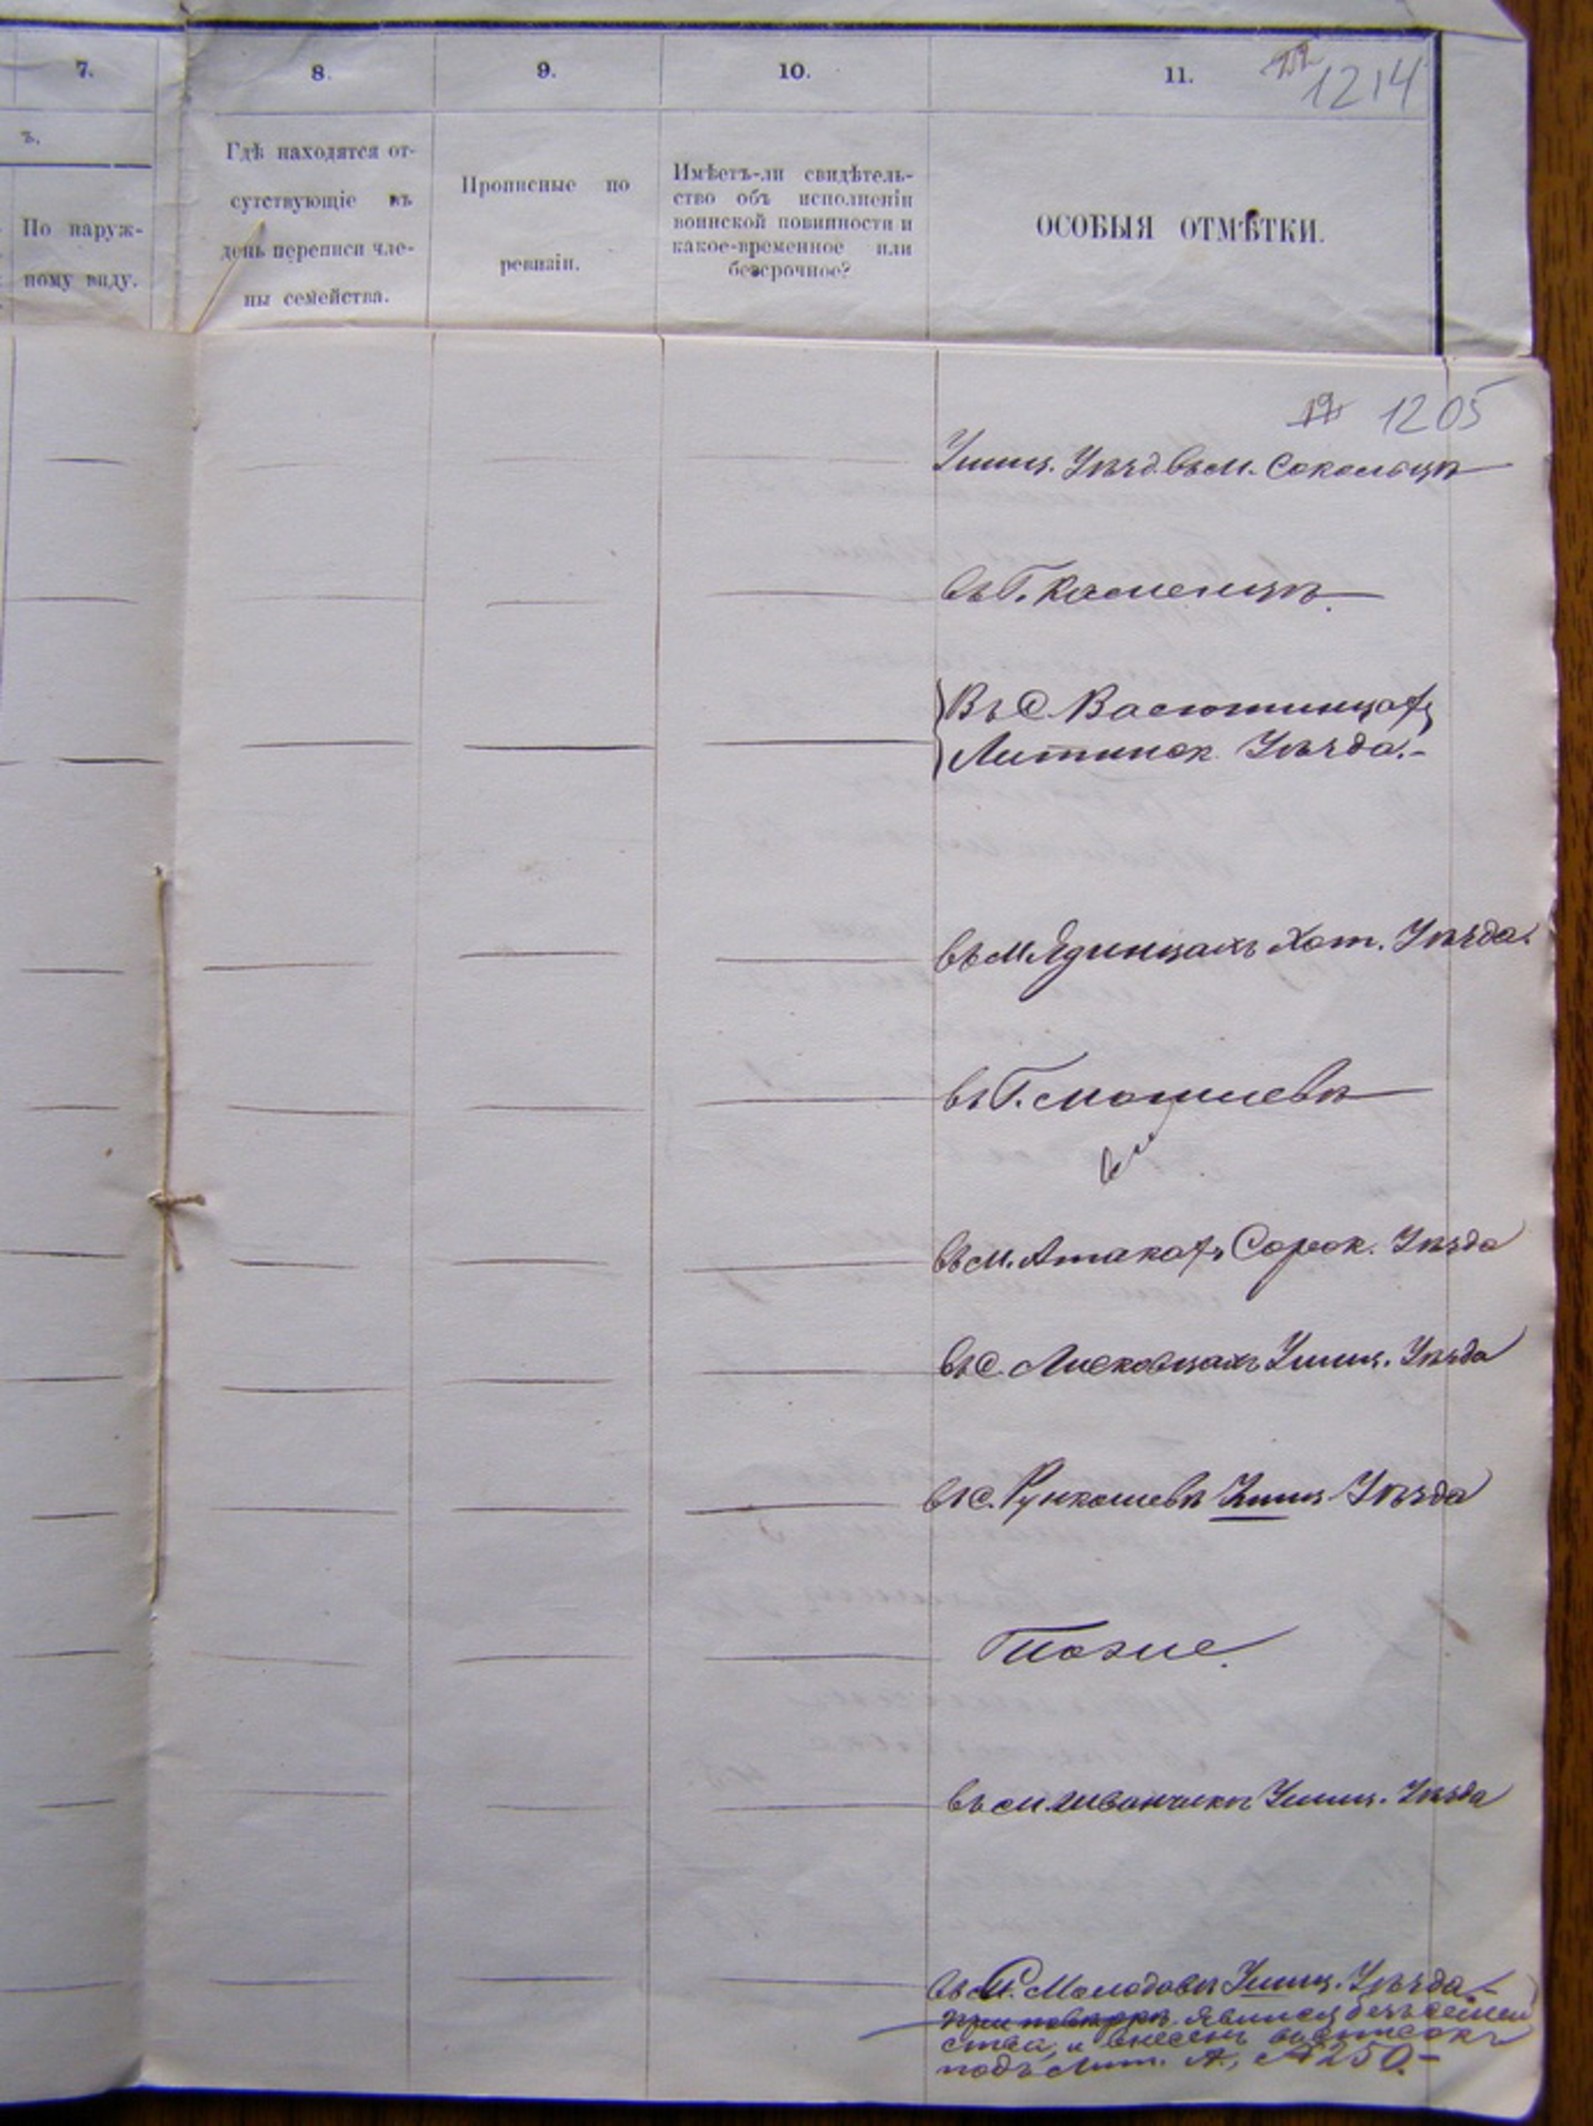 7.
8.
9.
10.
11.
1214
ъ.
По наруж-
ному виду.
Гдѣ находятся от-
сутствующіе въ
день переписи чле-
ны семейства.
Прописные по
ревизіи.
Имѣетъ-ли свидѣтель-
ство объ исполненіи
воинской повинности и
какое-временное или
безсрочное?
ОСОБЫЯ ОТМѢТКИ.
19 1205
Ушиц. Уѣзд. въ М. Сокольцѣ
въ Г. Каменцѣ.
Въ С. Васютинцахъ
Литинск. Уѣзда.-
въ М. Единцахъ Хот. Уѣзда.
въ Г. Могилевѣ
въ М. Атакахъ Сорок. Уѣзда
въ С. Лысковцахъ Ушиц. Уѣзда
въ С. Рункошевѣ Ушиц. Уѣзда
Тоже.
въ с. Иванчикѣ Ушиц. Уѣзда
въ С. Молодовѣ Ушиц. Уѣзда.-
при повѣркѣ явился безъ семей
ства, и внесенъ въ списокъ
подъ Лит. А, № 250.-